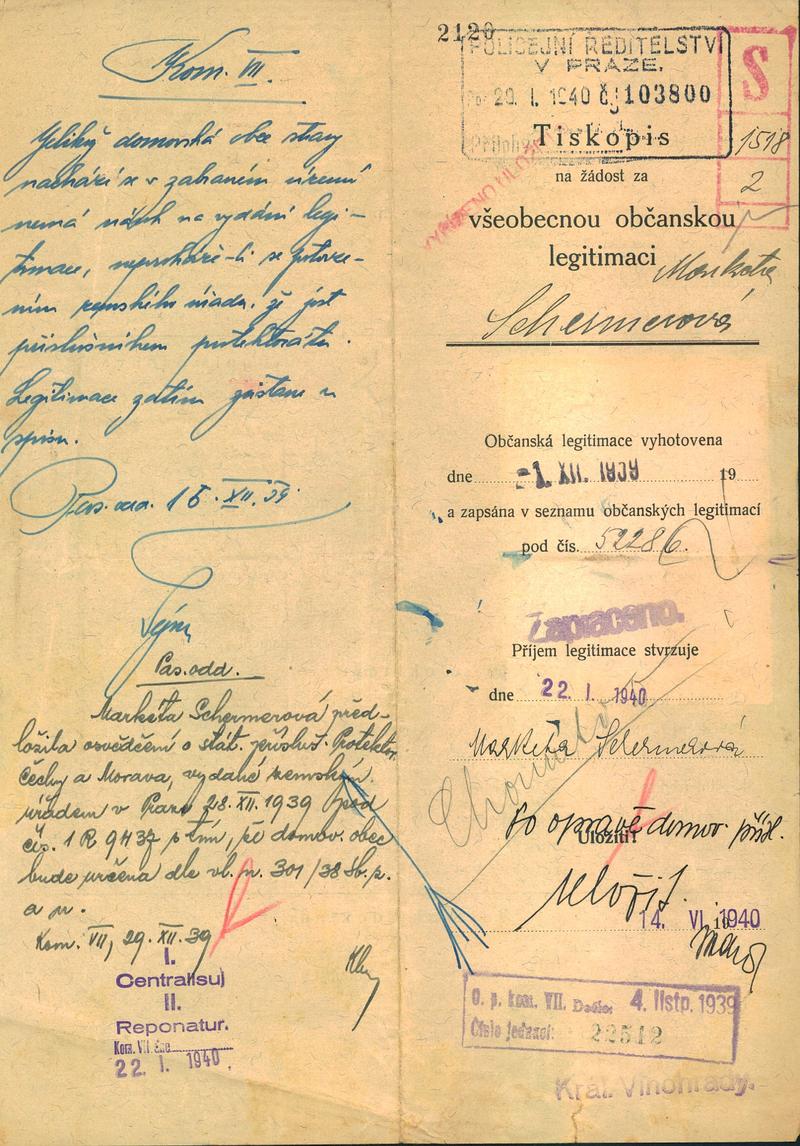 Kom. VII.
Jelikož domovská obec strany
nachází se v zabraném území
nemá nárok na vydání legi-
timace, neprokáže-li se potvrze-
ním zemského úřadu, že jest
příslušníkem protektorátu.
Legitimace zatím zůstane u
spisu.
Pas. odd. 15. XII. 39.
Pas. odd.
Markéta Schermerová před-
ložila osvědčení o stát. přísluš. Protektor.
Čechy a Morava, vydané zemským
úřadem v Praze 28. XII. 1939 pod
čís. 1 R 9437 s tím, že domov. obec
bude určena dle vl. n. 301/38 Sb. z.
a n.
Kom. VII, 29. XII. 39
I.
Centralisuj
II.
Reponatur.
Kom. VII dne
22. I. 1940.
2120
POLICEJNÍ ŘEDITELSTVÍ
V PRAZE.
29. I. 1940 č.j. 103800
Přílohy
S
1518
2
Tiskopis
na žádost za
všeobecnou občanskou
legitimaci Markéta
Schermerová
Občanská legitimace vyhotovena
dne -1. XII. 1939 19
a zapsána v seznamu občanských legitimací
pod čís. 52286.
Zaplaceno.
Příjem legitimace stvrzuje
dne 22. I. 1940
Markéta Schermerová
Po opravě domov. přísl.
Uložiti!
Uložit.
14. VI. 1940
19
O. p. kom. VII. Došlo: 4. listp. 1939
Číslo jednací: 22512
Král. Vinohrady.